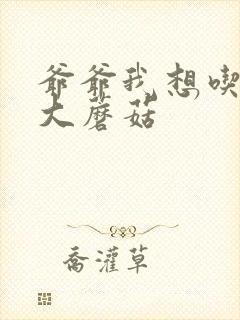 爷爷我想喫
大蘑菇
喬灌草